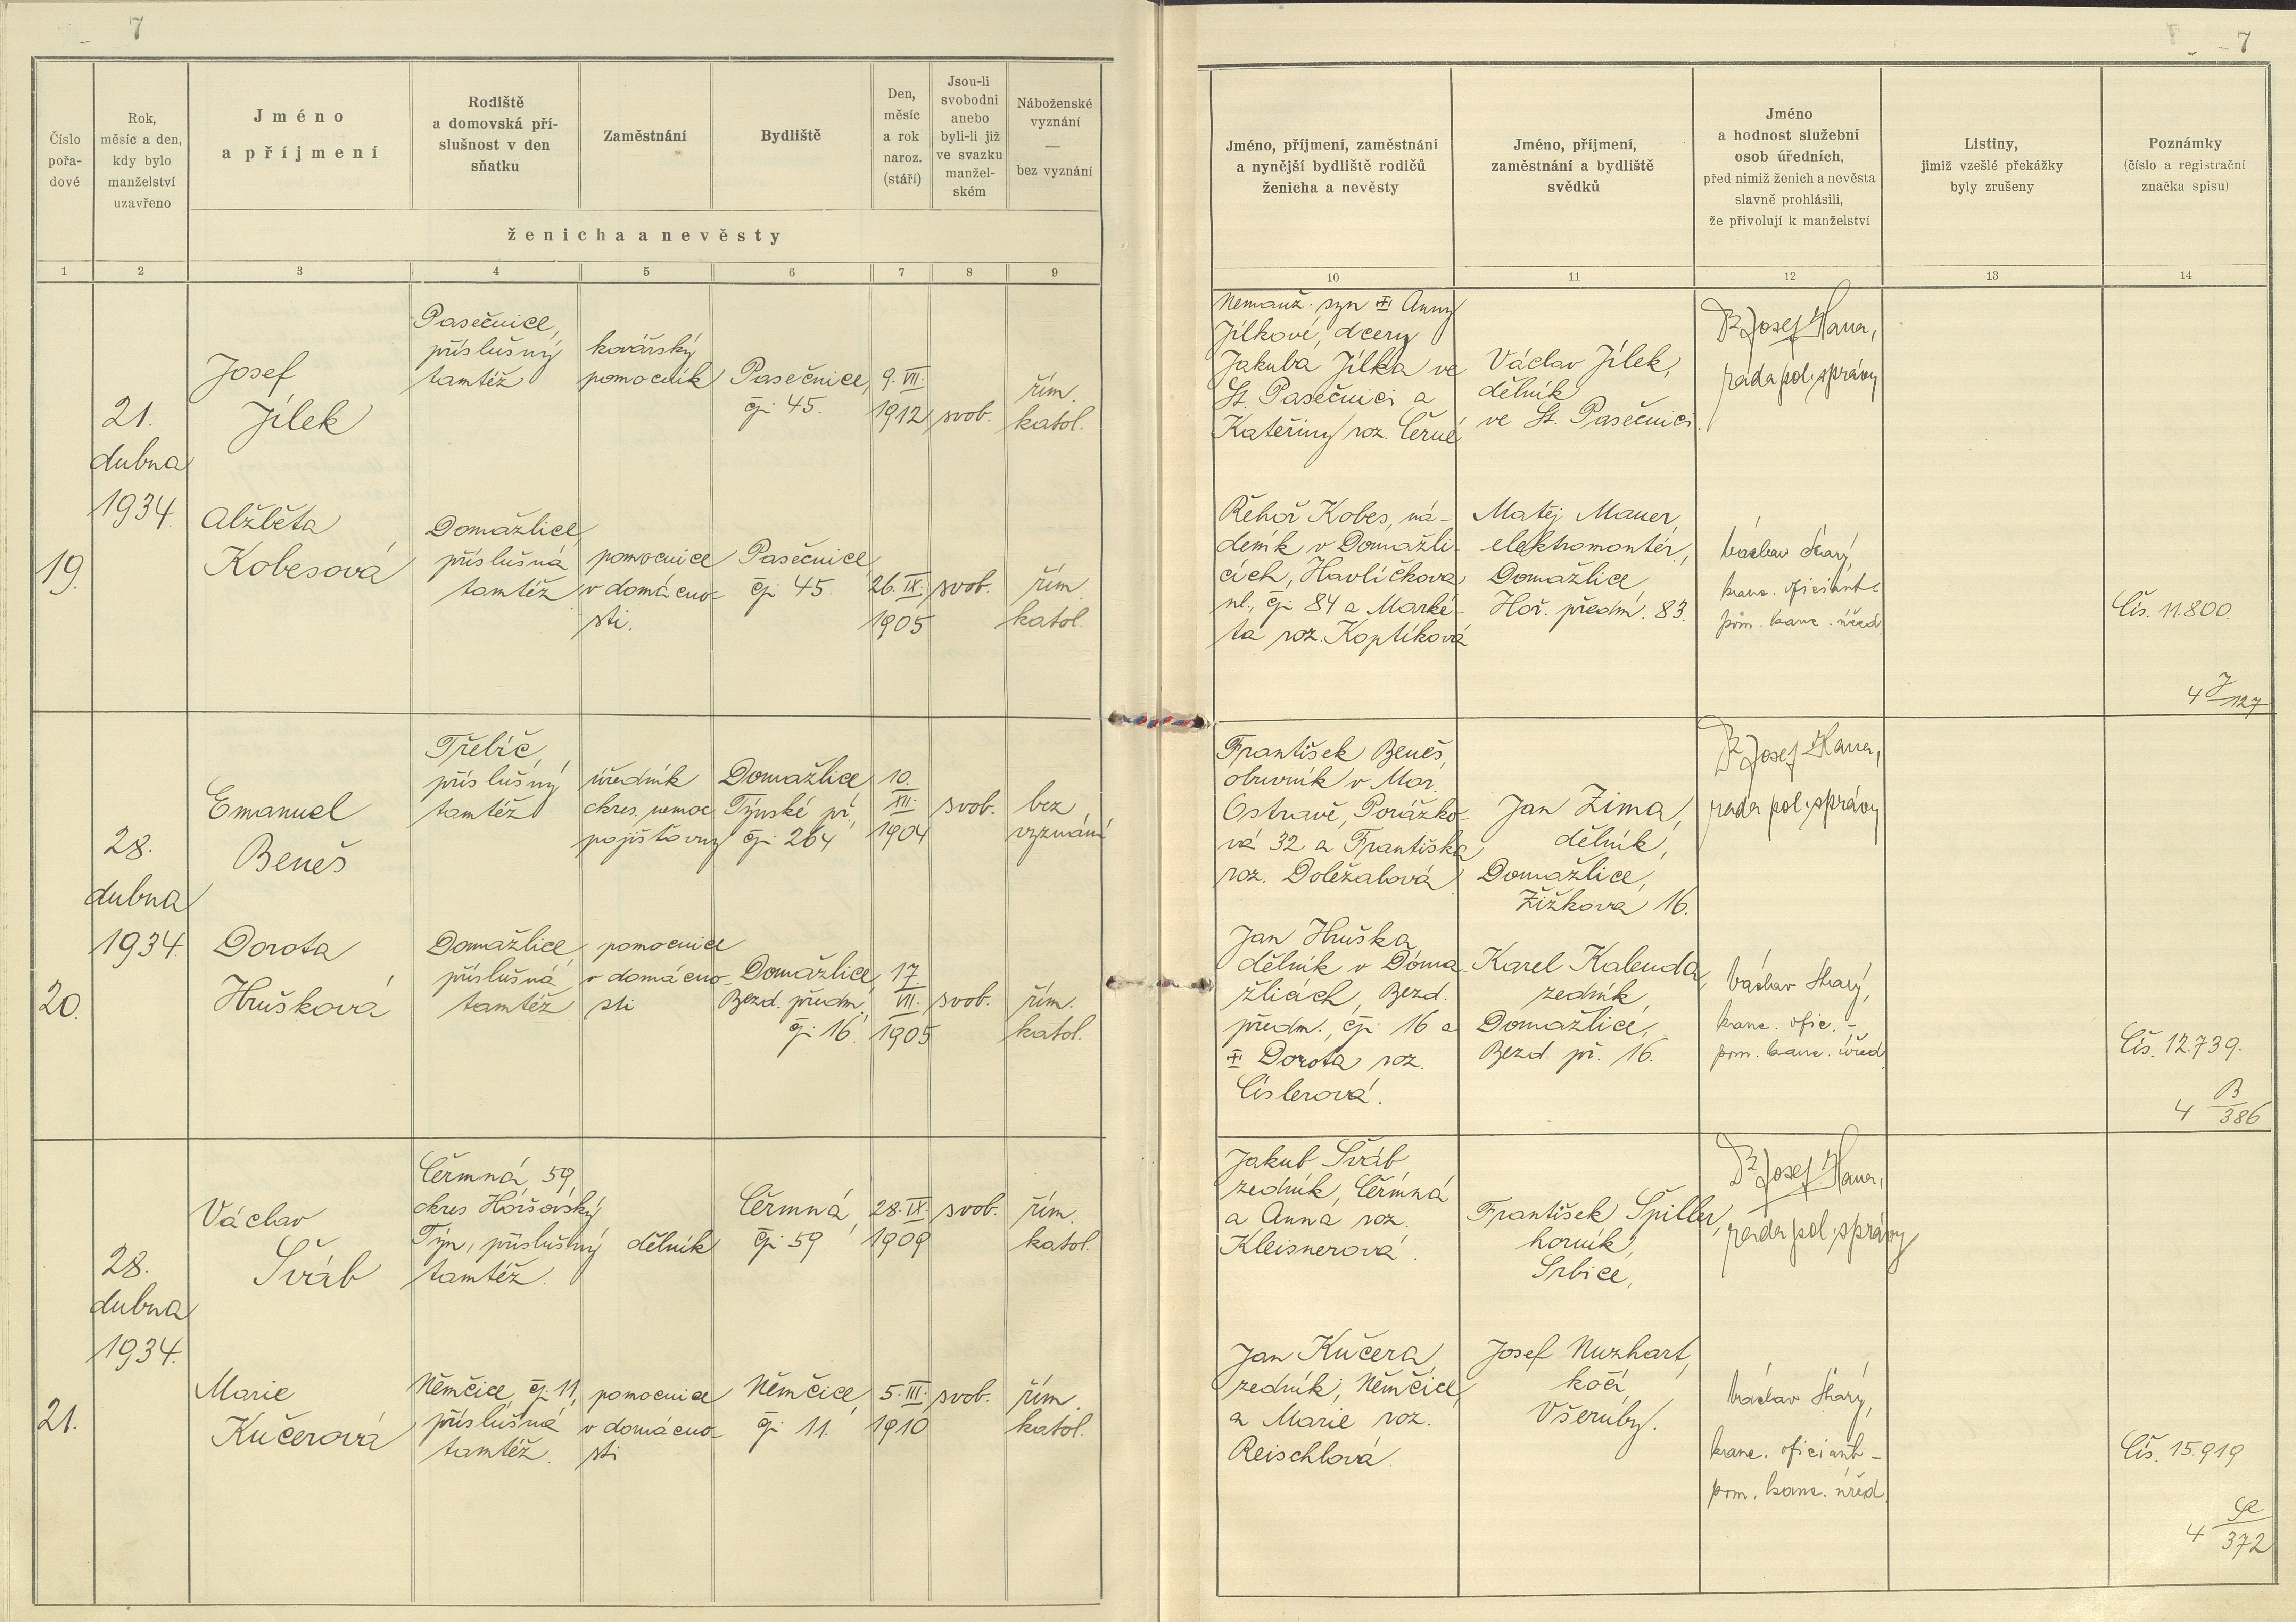 7
Číslo
pořa-
dové
Rok,
měsíc a den,
kdy bylo
manželství
uzavřeno
Jméno
a příjmení
Rodiště
a domovská pří-
slušnost v den
sňatku
Zaměstnání
Bydliště
Den,
měsíc
a rok
naroz.
(stáří)
Jsou-li
svobodni
anebo
byli-li již
ve svazku
manžel-
ském
Náboženské
vyznání
—
bez vyznání
ženicha a nevěsty
1
2
3
4
5
6
7
8
9
19.
21.
dubna
1934.
Josef
Jílek
Pasečnice,
příslušný
tamtéž
kovářský
pomocník
Pasečnice,
čp. 45.
9. VII.
1912
svob.
řím.
katol.
Alžběta
Kobesová
Domažlice,
příslušná
tamtéž
pomocnice
v domácno-
sti.
Pasečnice,
čp. 45.
26. IX.
1905
svob.
řím.
katol.
20.
28.
dubna
1934.
Emanuel
Beneš
Třebíč,
příslušný
tamtéž
úředník
okres. nemoc.
pojišťovny
Domažlice,
Týnské př.,
čp. 264
10.
XII.
1904
svob.
bez
vyznání
Dorota
Hrušková
Domažlice,
příslušná
tamtéž
pomocnice
v domácno-
sti
Domažlice,
Bezd. předm.,
čp. 16.
17.
VII.
1905
svob.
řím.
katol.
21.
28.
dubna
1934.
Václav
Šváb
Čermná, 59,
okres Horšovský
Týn, příslušný
tamtéž.
dělník
Čermná,
čp. 59
28. IX.
1909
svob.
řím.
katol.
Marie
Kučerová
Němčice, čp. 11,
příslušná
tamtéž.
pomocnice
v domácno-
sti
Němčice,
čp. 11.
5. III.
1910
svob.
řím.
katol.
7
Jméno, příjmení, zaměstnání
a nynější bydliště rodičů
ženicha a nevěsty
Jméno, příjmení,
zaměstnání a bydliště
svědků
Jméno
a hodnost služební
osob úředních,
před nimiž ženich a nevěsta
slavně prohlásili,
že přivolují k manželství
Listiny,
jimiž vzešlé překážky
byly zrušeny
Poznámky
(číslo a registrační
značka spisu)
10
11
12
13
14
Nemanž. syn Anny
Jílkové, dcery
Jakuba Jílka ve
St. Pasečnici a
Kateřiny roz. Černé
Václav Jílek,
dělník
ve St. Pasečnici.
Dr Josef Hana,
rada pol. správy
Řehoř Kobes, ná-
deník v Domažli-
cích, Havlíčkova
ul., čp. 84 a Marké-
ta roz. Koptíková
Matěj Mauer,
elektromontér,
Domažlice
Hoř. předm. 83.
Václav Starý,
kanc. oficiant-
pom. kanc. úřed.
Čís. 11.800.
4 J/127
František Beneš,
obuvník v Mor.
Ostravě, Porážko-
vá 32 a Františka
roz. Doležalová
Jan Zima,
dělník,
Domažlice,
Žižkova 16.
Dr Josef Hana,
rada pol. správy
Jan Hruška
dělník v Doma-
žlicích, Bezd.
předm., čp. 16 a
Dorota roz.
Císlerová.
Karel Kalenda,
zedník,
Domažlice,
Bezd. př. 16.
Václav Starý,
kanc. ofic. -
pom. kanc. úřed.
Čís. 12.739.
4 B/386
Jakub Šváb,
zedník, Čermná
a Anna roz.
Kleisnerová.
František Špiller,
horník,
Srbice,
Dr Josef Hana,
rada pol. správy
Jan Kučera,
zedník, Němčice,
a Marie roz.
Reischlová.
Josef Nuzhart,
kočí,
Všeruby.
Václav Starý,
kanc. oficiant-
pom. kanc. úřed.
Čís. 15.919
4
372